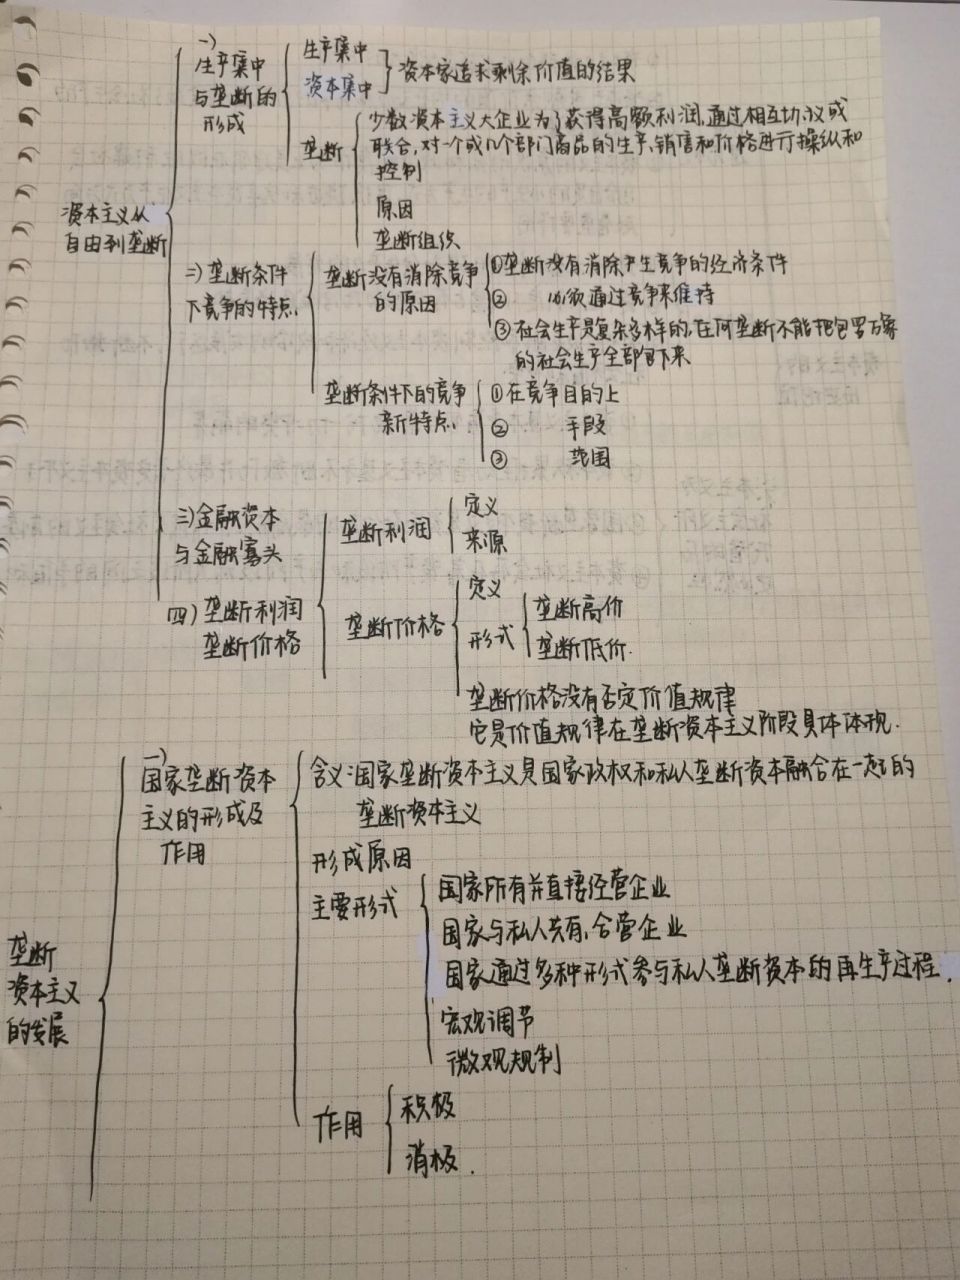 资本主义从
自由到垄断
一)
生产集中
与垄断的
形成
生产集中
资本集中
资本家追求剩余价值的结果
垄断
少数资本主义大企业为了获得高额利润,通过相互协议或
联合,对一个或几个部门商品的生产、销售和价格进行操纵和
控制
原因
垄断组织
二)垄断条件
下竞争的特点
垄断没有消除竞争
的原因
①垄断没有消除产生竞争的经济条件
② 必须通过竞争来维持
③社会生产是复杂多样的,任何垄断不能把包罗万象
的社会生产全部包下来
垄断条件下的竞争
新特点
①在竞争目的上
② 手段
③ 范围
三)金融资本
与金融寡头
四)垄断利润
垄断价格
垄断利润
定义
来源
垄断价格
定义
形式
垄断高价
垄断低价.
垄断价格没有否定价值规律
它是价值规律在垄断资本主义阶段具体体现.
垄断
资本主义
的发展
一)
国家垄断资本
主义的形成及
作用
含义:国家垄断资本主义是国家政权和私人垄断资本融合在一起的
垄断资本主义
形成原因
主要形式
国家所有并直接经营企业
国家与私人共有、合营企业
国家通过多种形式参与私人垄断资本的再生产过程.
宏观调节
微观规制
作用
积极
消极.